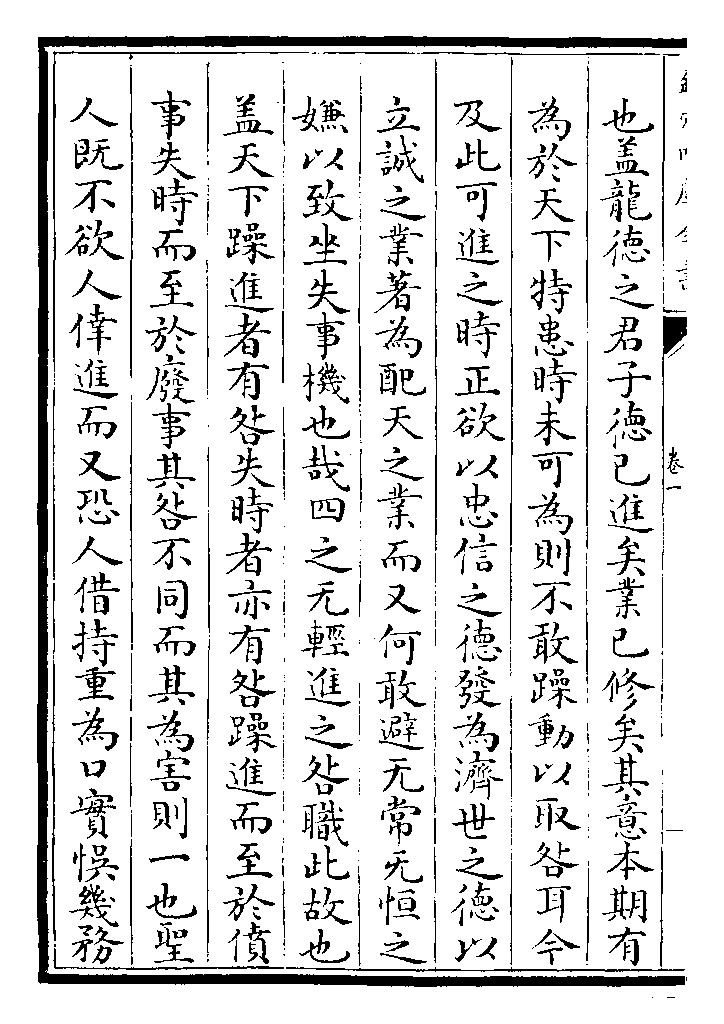 卷一
也盖龍德之君子德已進矣業已修矣其意本期有
為於天下特患時未可為則不敢躁動以取咎耳今
及此可進之時正欲以忠信之德發為濟世之德以
立誠之業著為配天之業而又何敢避无常无恒之
嫌以致坐失事機也哉四之无輕進之咎職此故也
盖天下躁進者有咎失時者亦有咎躁進而至於僨
事失時而至於廢事其咎不同而其為害則一也聖
人既不欲人倖進而又恐人借持重為口實悞幾務